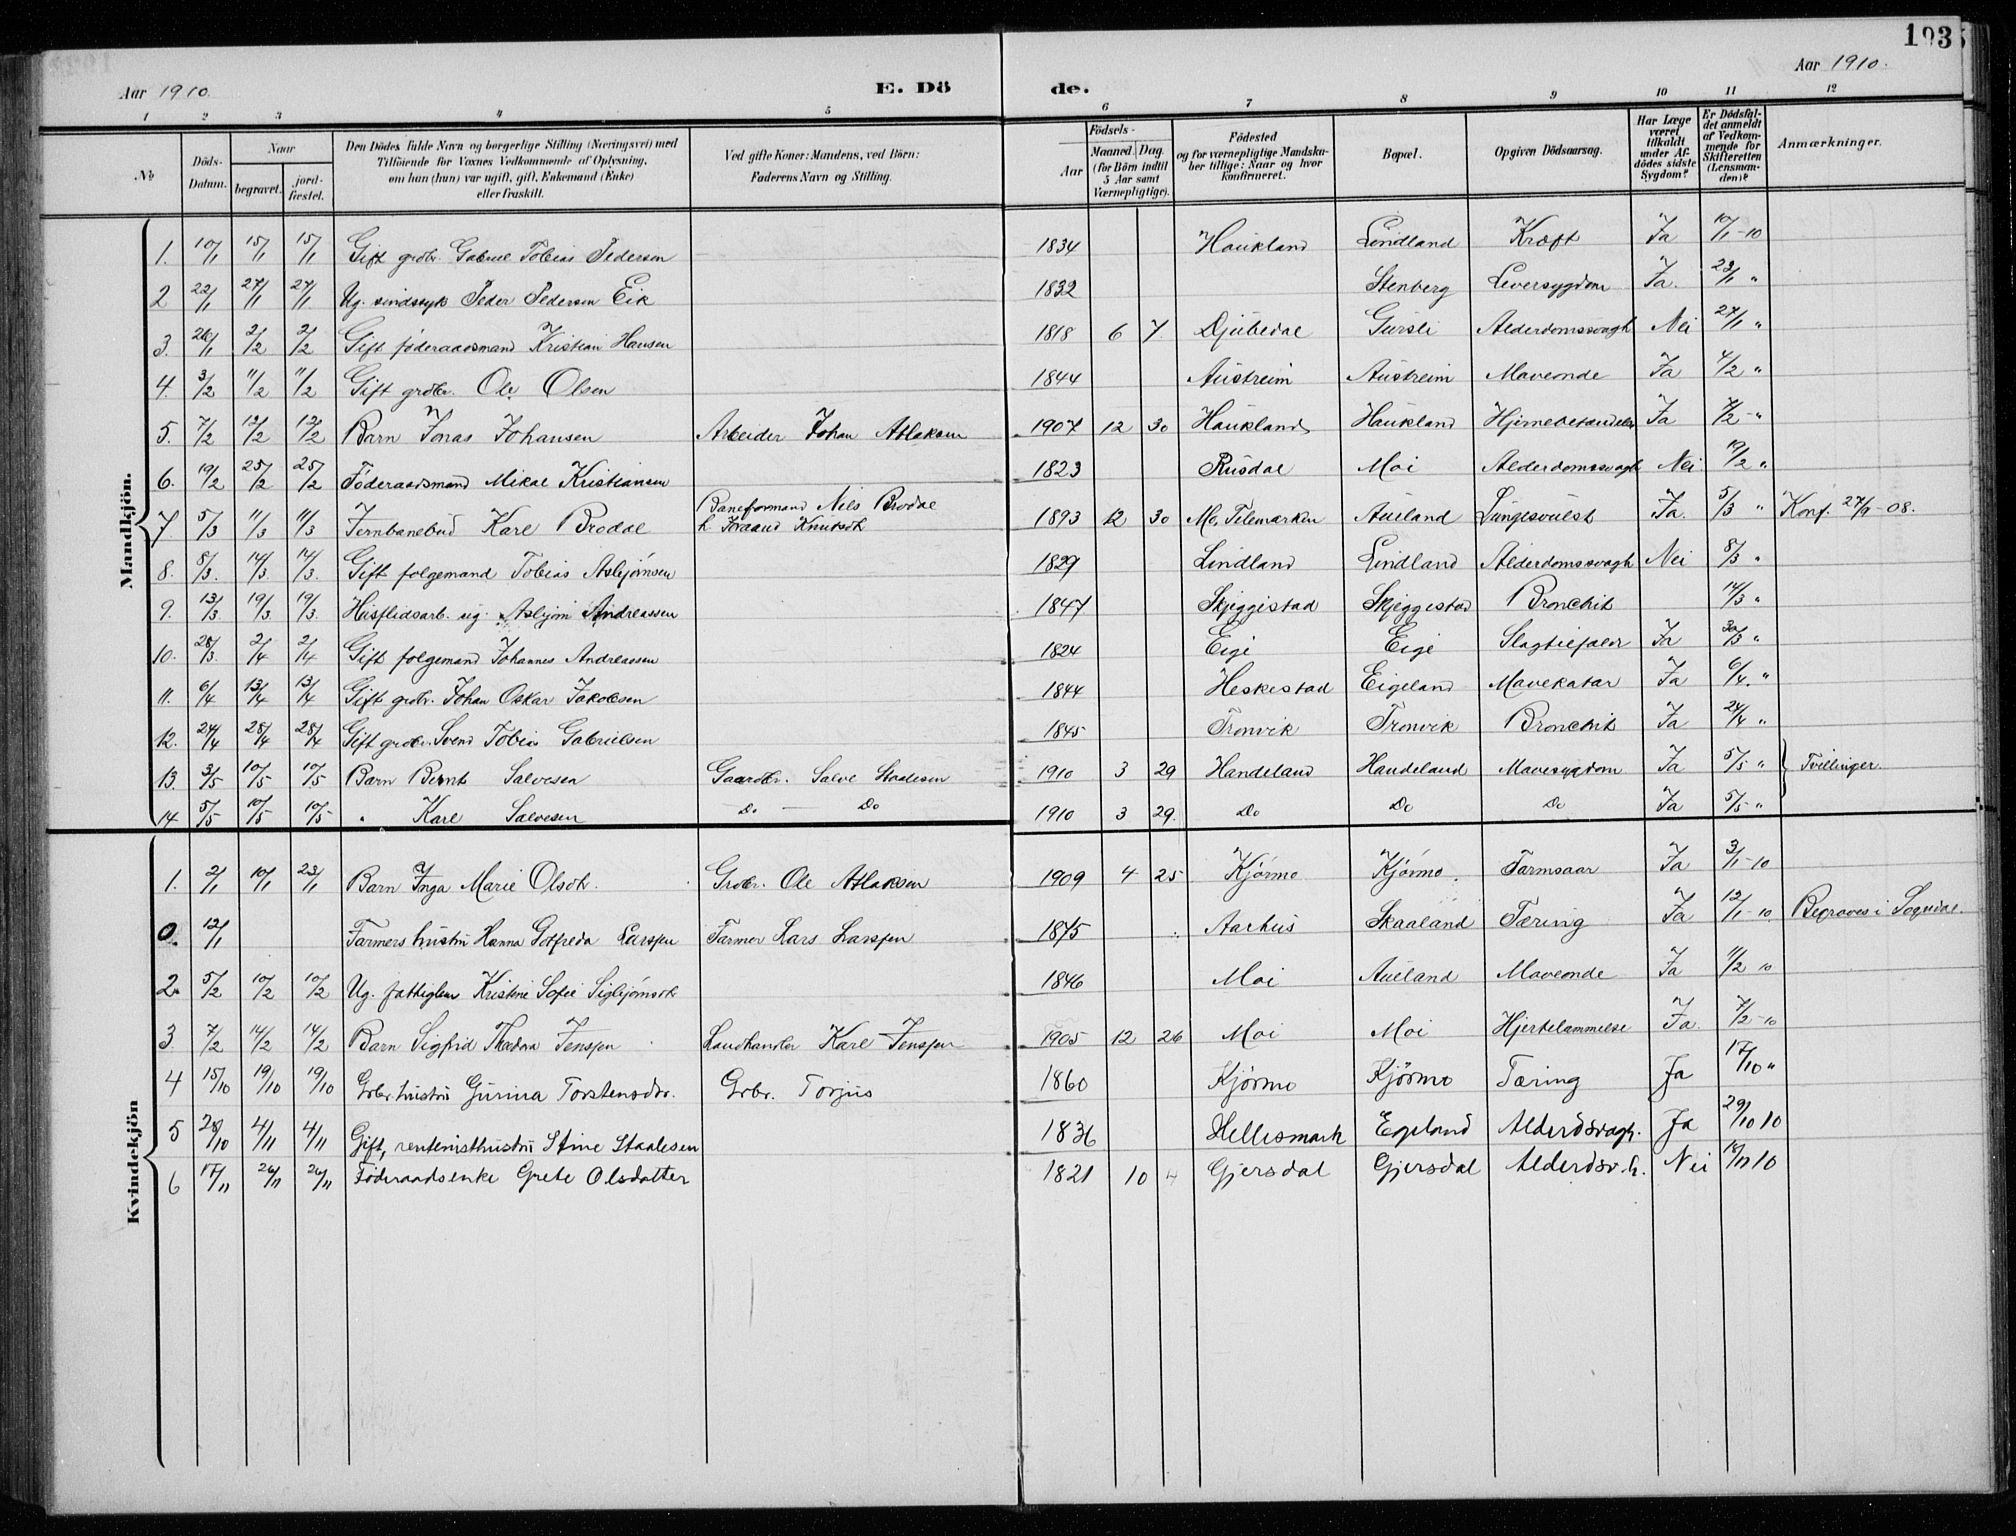 193
Aar 1910. E. Dö de. Aar 1910.
1 2 3 4 5 6 7 8 9 10 11 12
№
Döds-Datum.
Naar
begravet.
jord-fæstet.
Den Dödes fulde Navn og borgerlige Stilling (Næringsvei) med
Tilföiende for Voxnes Vedkommende af Oplysning,
om han (hun) var ugift, gift, Enkemand (Enke)
eller fraskilt.
Ved gifte Koner: Mandens, ved Börn:
Faderens Navn og Stilling.
Födsels-
Aar
Maaned. Dag.
(for Börn indtil
5 Aar samt
Værnepligtige).
Födested
og for værnepligtige Mandska-
ber tillige: Naar og hvor
konfirmeret.
Bopæl.
Opgiven Dödsaarsag.
Har Læge
været
tilkaldt
under Af-
dödes sidste
Sygdom?
Er Dödsfal-
det anmeldt
af Vedkom-
mende for
Skifteretten
(Lensman-
den)?
Anmærkninger.
Mandkjön.
1. 10/1 15/1 15/1 Gift grdbr. Gabriel Tobias Pedersen 1834 Haukland Lindland Kræft Ja 10/1-10
2 22/1 27/1 27/1 Ug. sindssyk Peder Pedersen Eik 1832 Stenberg Leversygdom Ja. 23/1 "
3. 26/1 2/2 2/2 Gift föderaadsmand Kristian Hansen 1818 6 7. Djubedal Gursli Alderdomssvagh Nei 27/1 "
4. 3/2 11/2 11/2 Gift grdbr. Ole Olsen 1844 Austreim Austreim Maveonde Ja 4/2 "
5. 7/2 12/2 12/2 Barn Jonas Johansen Arbeider Johan Atlaksen 1907 12 30 Haukland Haukland Hjernebetændelse Ja 7/2 - "
6. 19/2 25/2 25/2 Föderaadsmand Mikal Kristiansen 1823 Rusdal Moi Alderdomssvagh Nei 19/2 "
7. 5/3 11/3 11/3 Jernbanebud Karl Brodal Baneformand Nils Brodal
h. Knutsdt 1893 12 30 Mo, Telemarken Aueland Lungesvulst Ja. 5/3 " Konf. -08.
8. 8/3. 14/3. 14/3. Gift folgemand Tobias Asbjörnsen 1829 Lindland Lindland Alderdomssvagh Nei 8/3 "
9. 13/3 19/3 19/3. Husflidsarb. ug. Asbjörn Andreassen 1847 Skjeggestad Skjeggestad Bronchit 14/3 "
10. 28/3. 2/4 2/4 Gift folgemand Johannes Andreassen 1824 Eige Eige Slagtilfælde Ja 30/3 "
11. 6/4 13/4 13/4 Gift grdbr. Johan Oskar Jakobsen 1844 Heskestad Eigeland Mavekatar Ja 6/4. "
12. 24/4 28/4 28/4 Gift grdbr. Svend Tobias Gabrielsen 1845 Tronvik Tronvik Bronchit Ja 24/4 "
13. 3/5 10/5 10/5 Barn Bernt Salvesen Gaardbr. Salve Staalesen 1910 3 29 Handeland Handeland Mavesygdom Ja 5/5 " Tvillinger.
14 5/5 10/5 10/5 " Karl Salvesen Do — Do 1910 3 29. Do Do Do Ja 5/5 "
Kvindekjön
1. 2/1 10/1 23/1 Barn Inga Marie Olsdt. Grdbr. Ole Atlaksen 1909 4 25 Kjörmo Kjörmo Tarmsaar Ja 3/1-10
0. 12/1 Farmers hustru Hanna Gotfreda Larsen Farmer Lars Larsen 1875 Aarhus Skaaland Tæring Ja 12/1-10 Begraves i Sogndal.
2. 5/2 10/2 10/2 Ug. fattiglem Kristine Sofie Sigbjörnsdt 1846 Moi Aueland Maveonde Ja 11/2 10
3. 7/2 14/2 14/2 Barn Sigfrid Theodora Jensen Landhandler Karl Jensen 1905 12 26 Moi Moi Hjertelammelse Ja. 7/2-10
4 15/10 19/10 19/10 Grbr. hustru Gurina Torstensdtr. Grbr. Torjus 1860 Kjörmo Kjörmo Tæring Ja 17/10 "
5 28/10 4/11 4/11 Gift, rentenisthustru Stine Staalesen 1836 Hellesmark Egeland Alderdsvagh. Ja 29/10 10
6 17/11 26/11 26/11 Föderaadsenke Grete Olsdatter 1821 10 4 Gjersdal Gjersdal Alderdsv.h. Nei 18/11 10